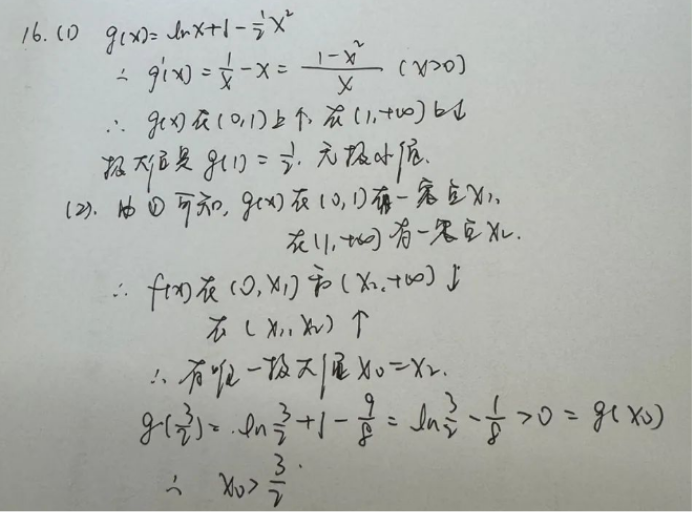 16. (1) g(x)= lnx+1-½x²
∴ g'(x) = 1/x - x = (1-x²)/x (x>0)
∴ g(x)在(0,1)上↑, 在(1,+∞)上↓
极大值是g(1)=½. 无极小值.
(2). 由①可知, g(x)在(0,1)有一零点x₁,
在(1,+∞)有一零点x₂.
∴ f(x)在(0,x₁)和(x₂,+∞)↓
在(x₁,x₂)↑
∴ 有唯一极大值x₀=x₂.
g(3/2)= ln3/2+1-9/8 = ln3/2-1/8>0=g(x₀)
∴ x₀>3/2.